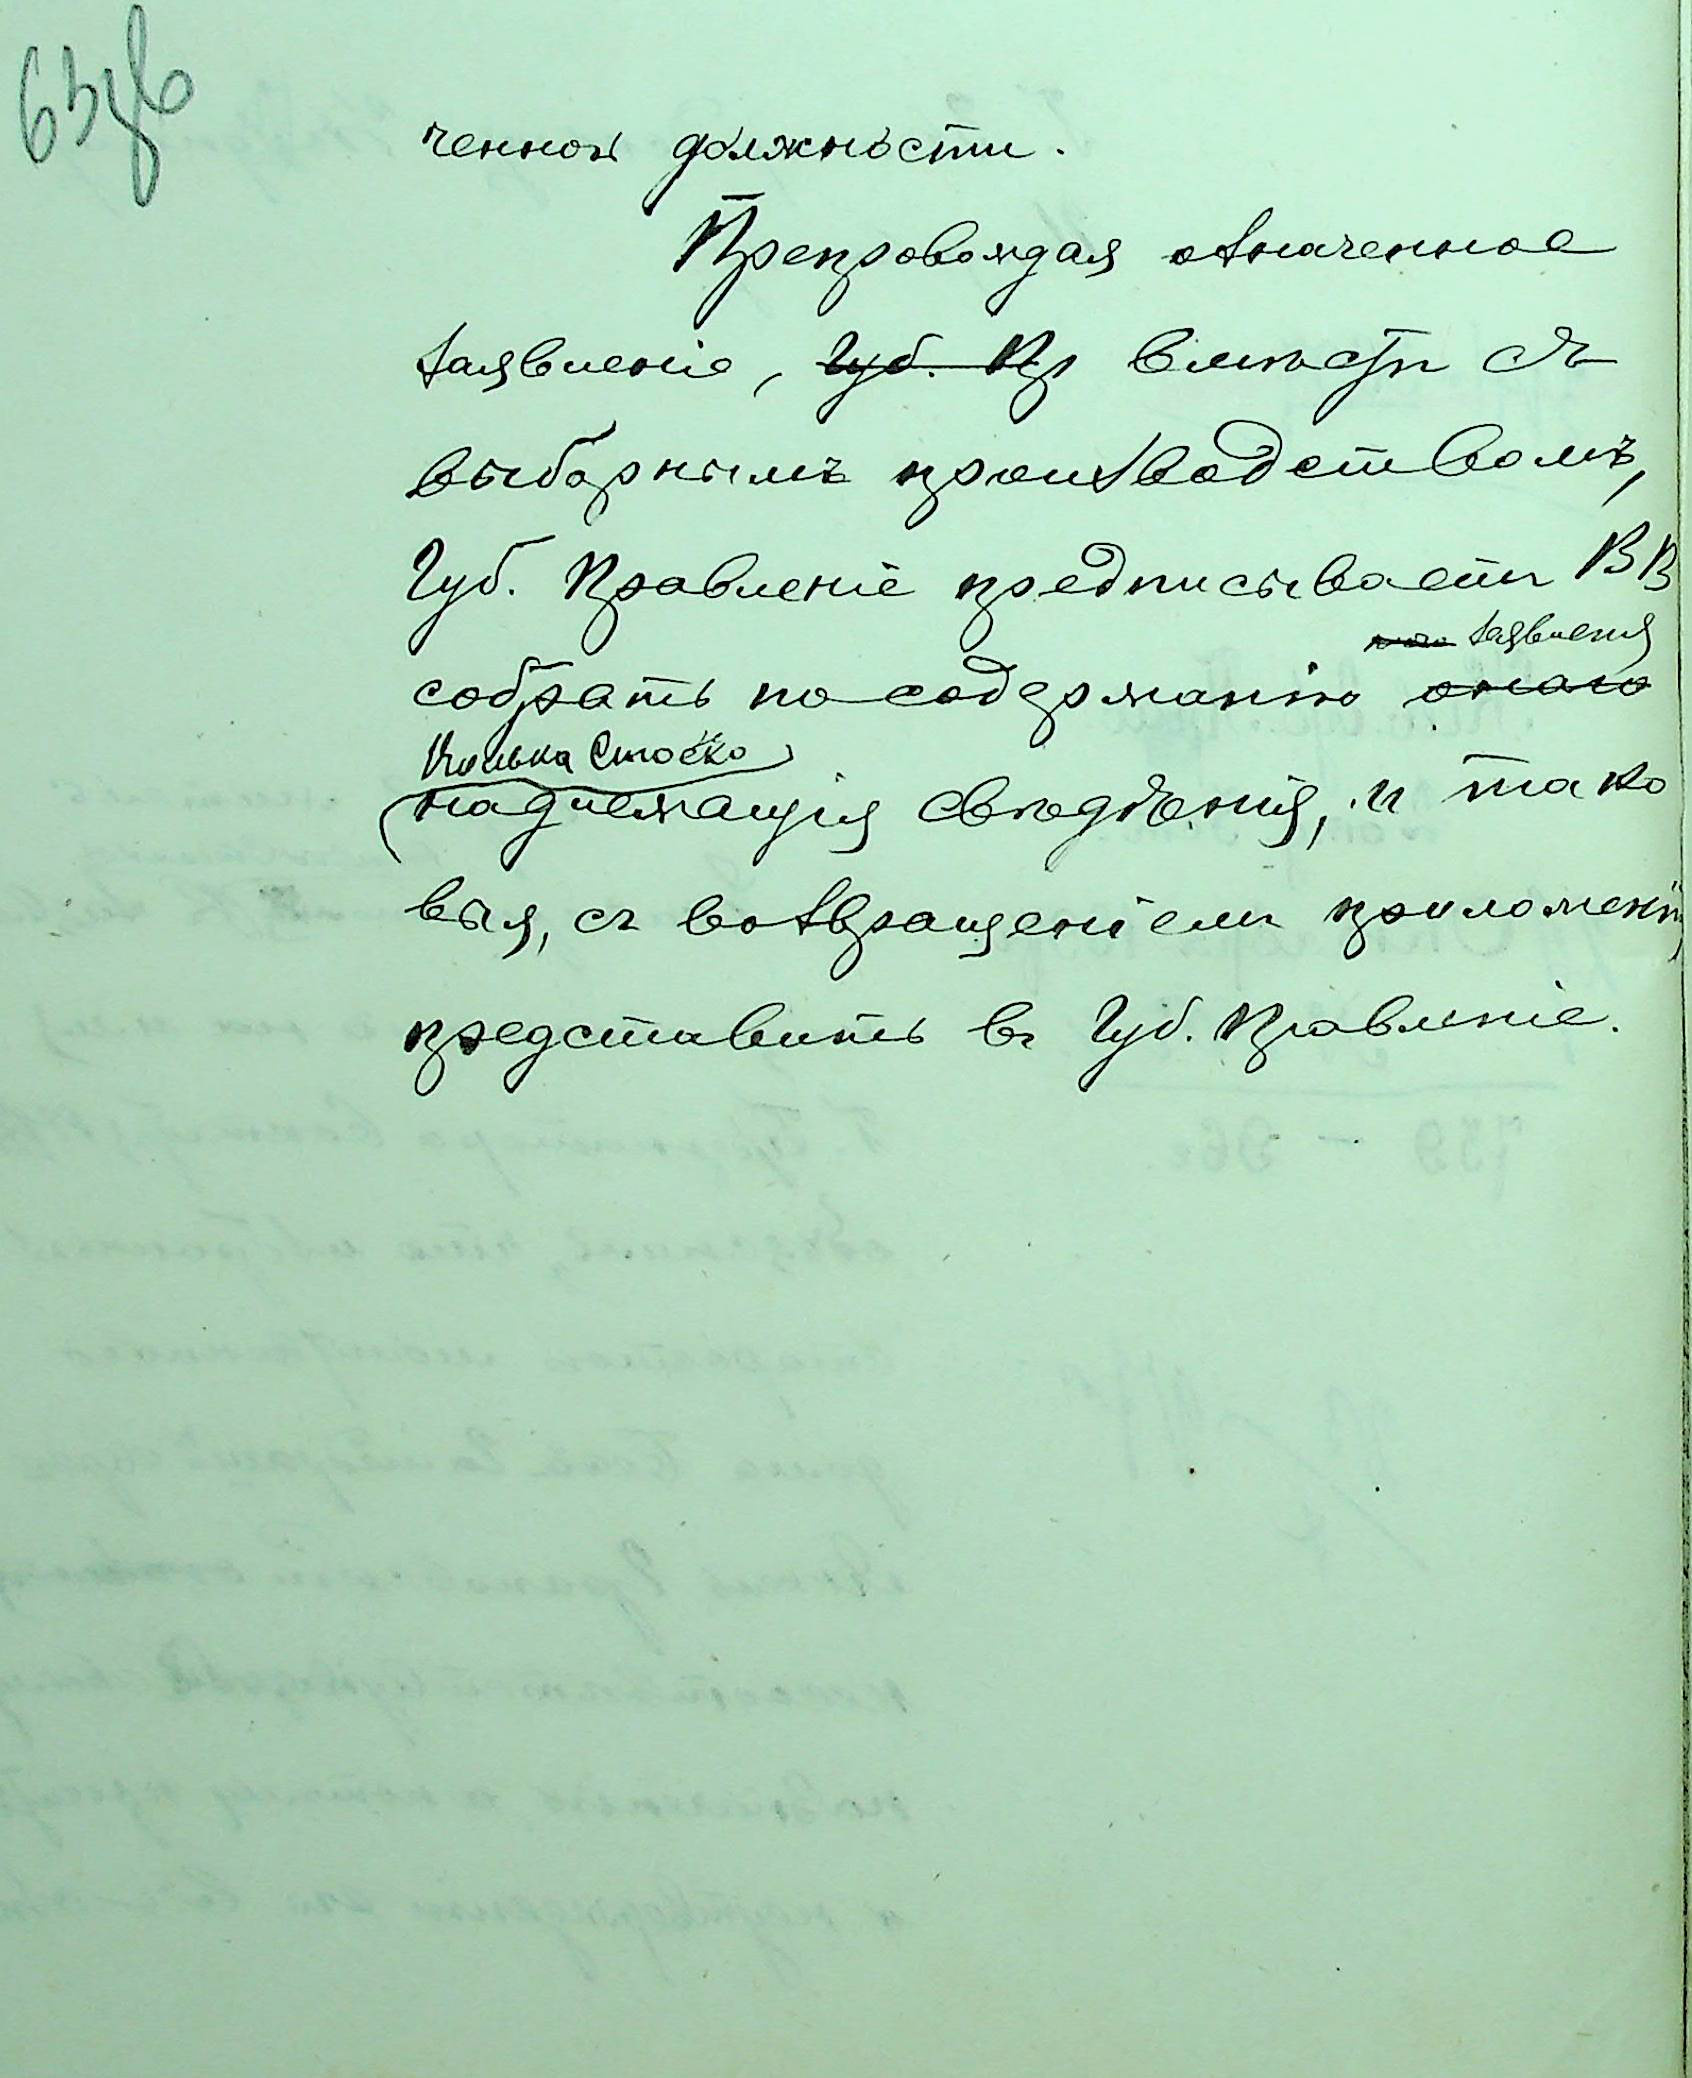 63 об
ченной должности.
Препровождая означенное
заявленіе, Губ. Пр вмѣстѣ съ
выборнымъ производствомъ,
Губ. Правленіе предписываетъ ВВ
заявленія
собрать по содержанію онаго
надлежащія свѣдѣнія, и тако
выя, съ возвращеніемъ приложенія
представить въ Губ. Правленіе.